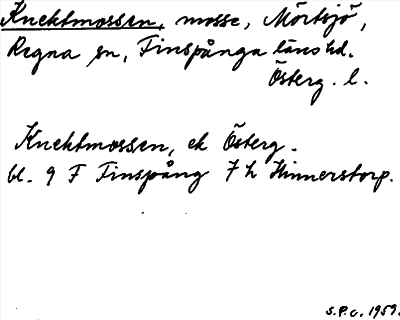 Knektmossen, mosse, Mörtsjö,
Regna sn, Finspånga läns hd.
Österg. l.
Knektmossen, ek Österg.
bl. 9 F Finspång 7 h Hinnerstorp.
S.P.c. 1959.